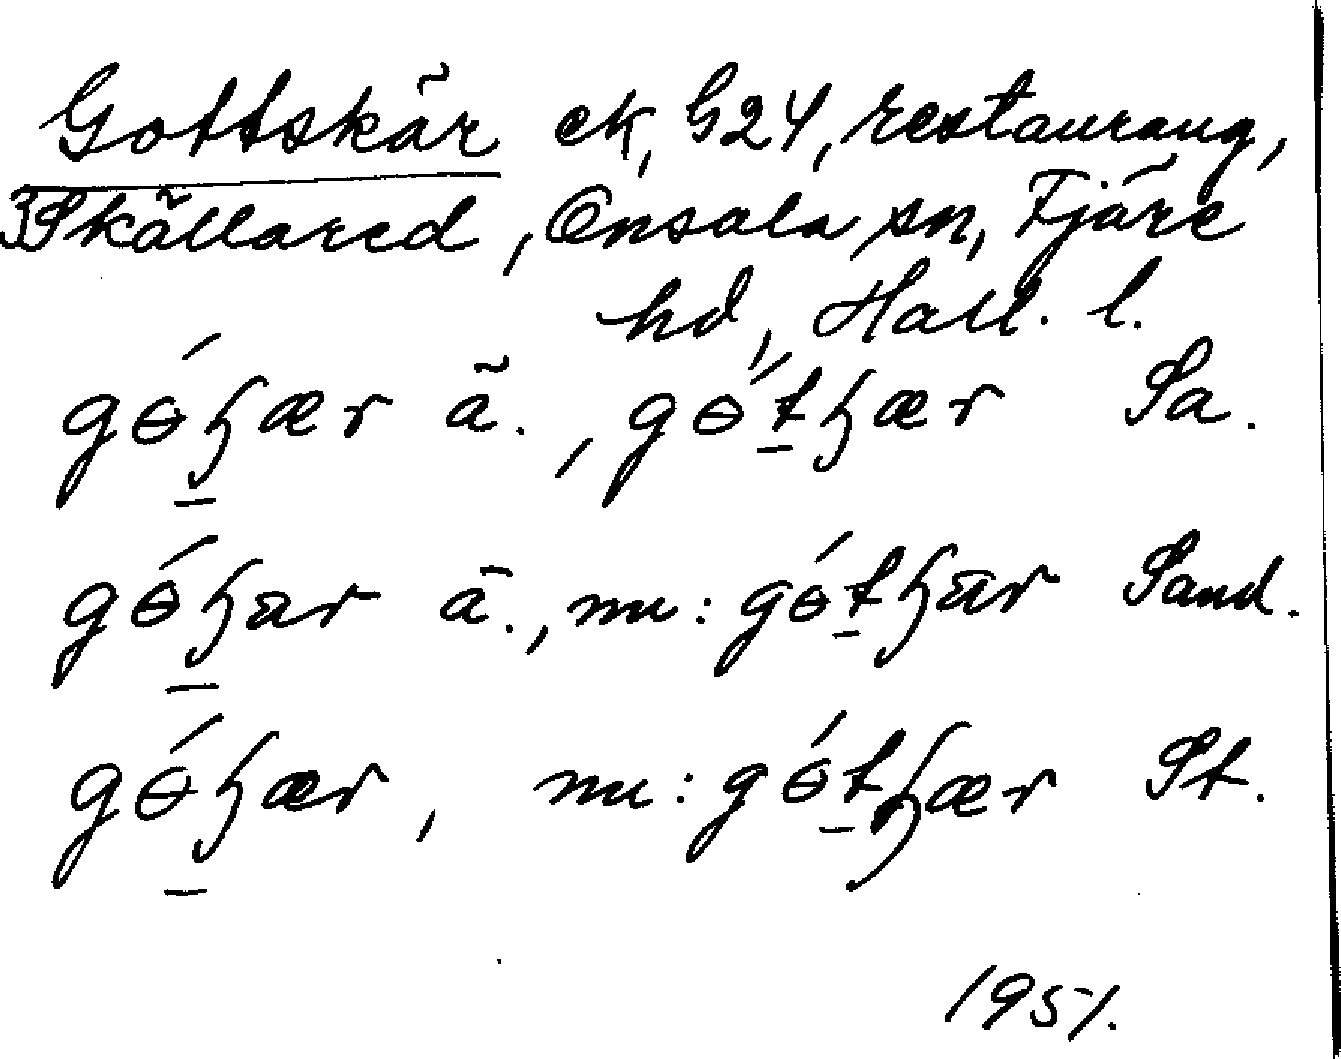 Gottskär ek, G24, restaurang,
3Skällared, Onsala sn, Fjäre
hd, Hall. l.
gɵ́ꜧær ä., gɵ́tꜧær Sa.
gɵ́ꜧær ä., nu: gɵ́tꜧær Sand.
gɵ́ꜧær, nu: gɵ́tꜧær St.
1951.